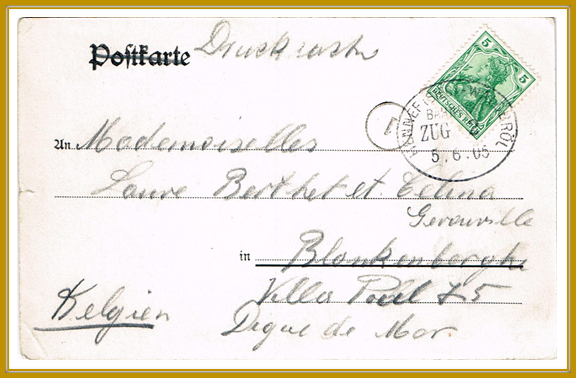 Postkarte Drucksache
5 5
DEUTSCHES REICH
HENNEF (S WALDBRÖL
BAHNPOST
ZUG
5.6.05
1
An Mademoiselles
Laure Berthet et Celina
Gerouville
in Blankenberghe
Villa Paul 75
Belgien Digue de Mer.